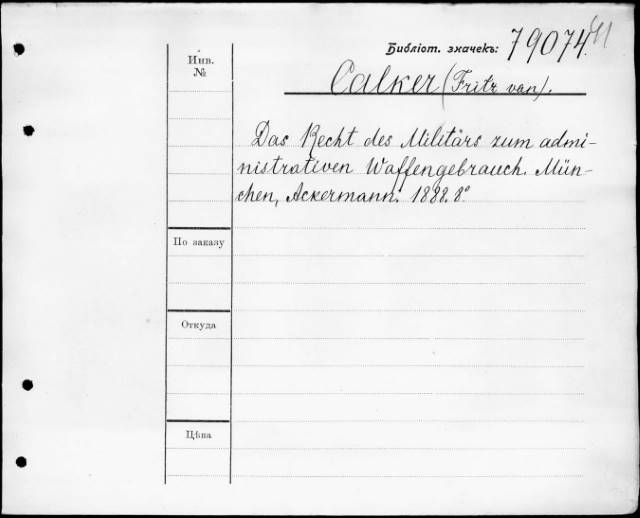 Библіот. значекъ: 79074
Инв.
№
Calker (Fritz van).
Das Recht des Militärs zum admi-
nistrativen Waffengebrauch. Mün-
chen, Ackermann. 1888. 8°
По заказу
Откуда
Цѣна